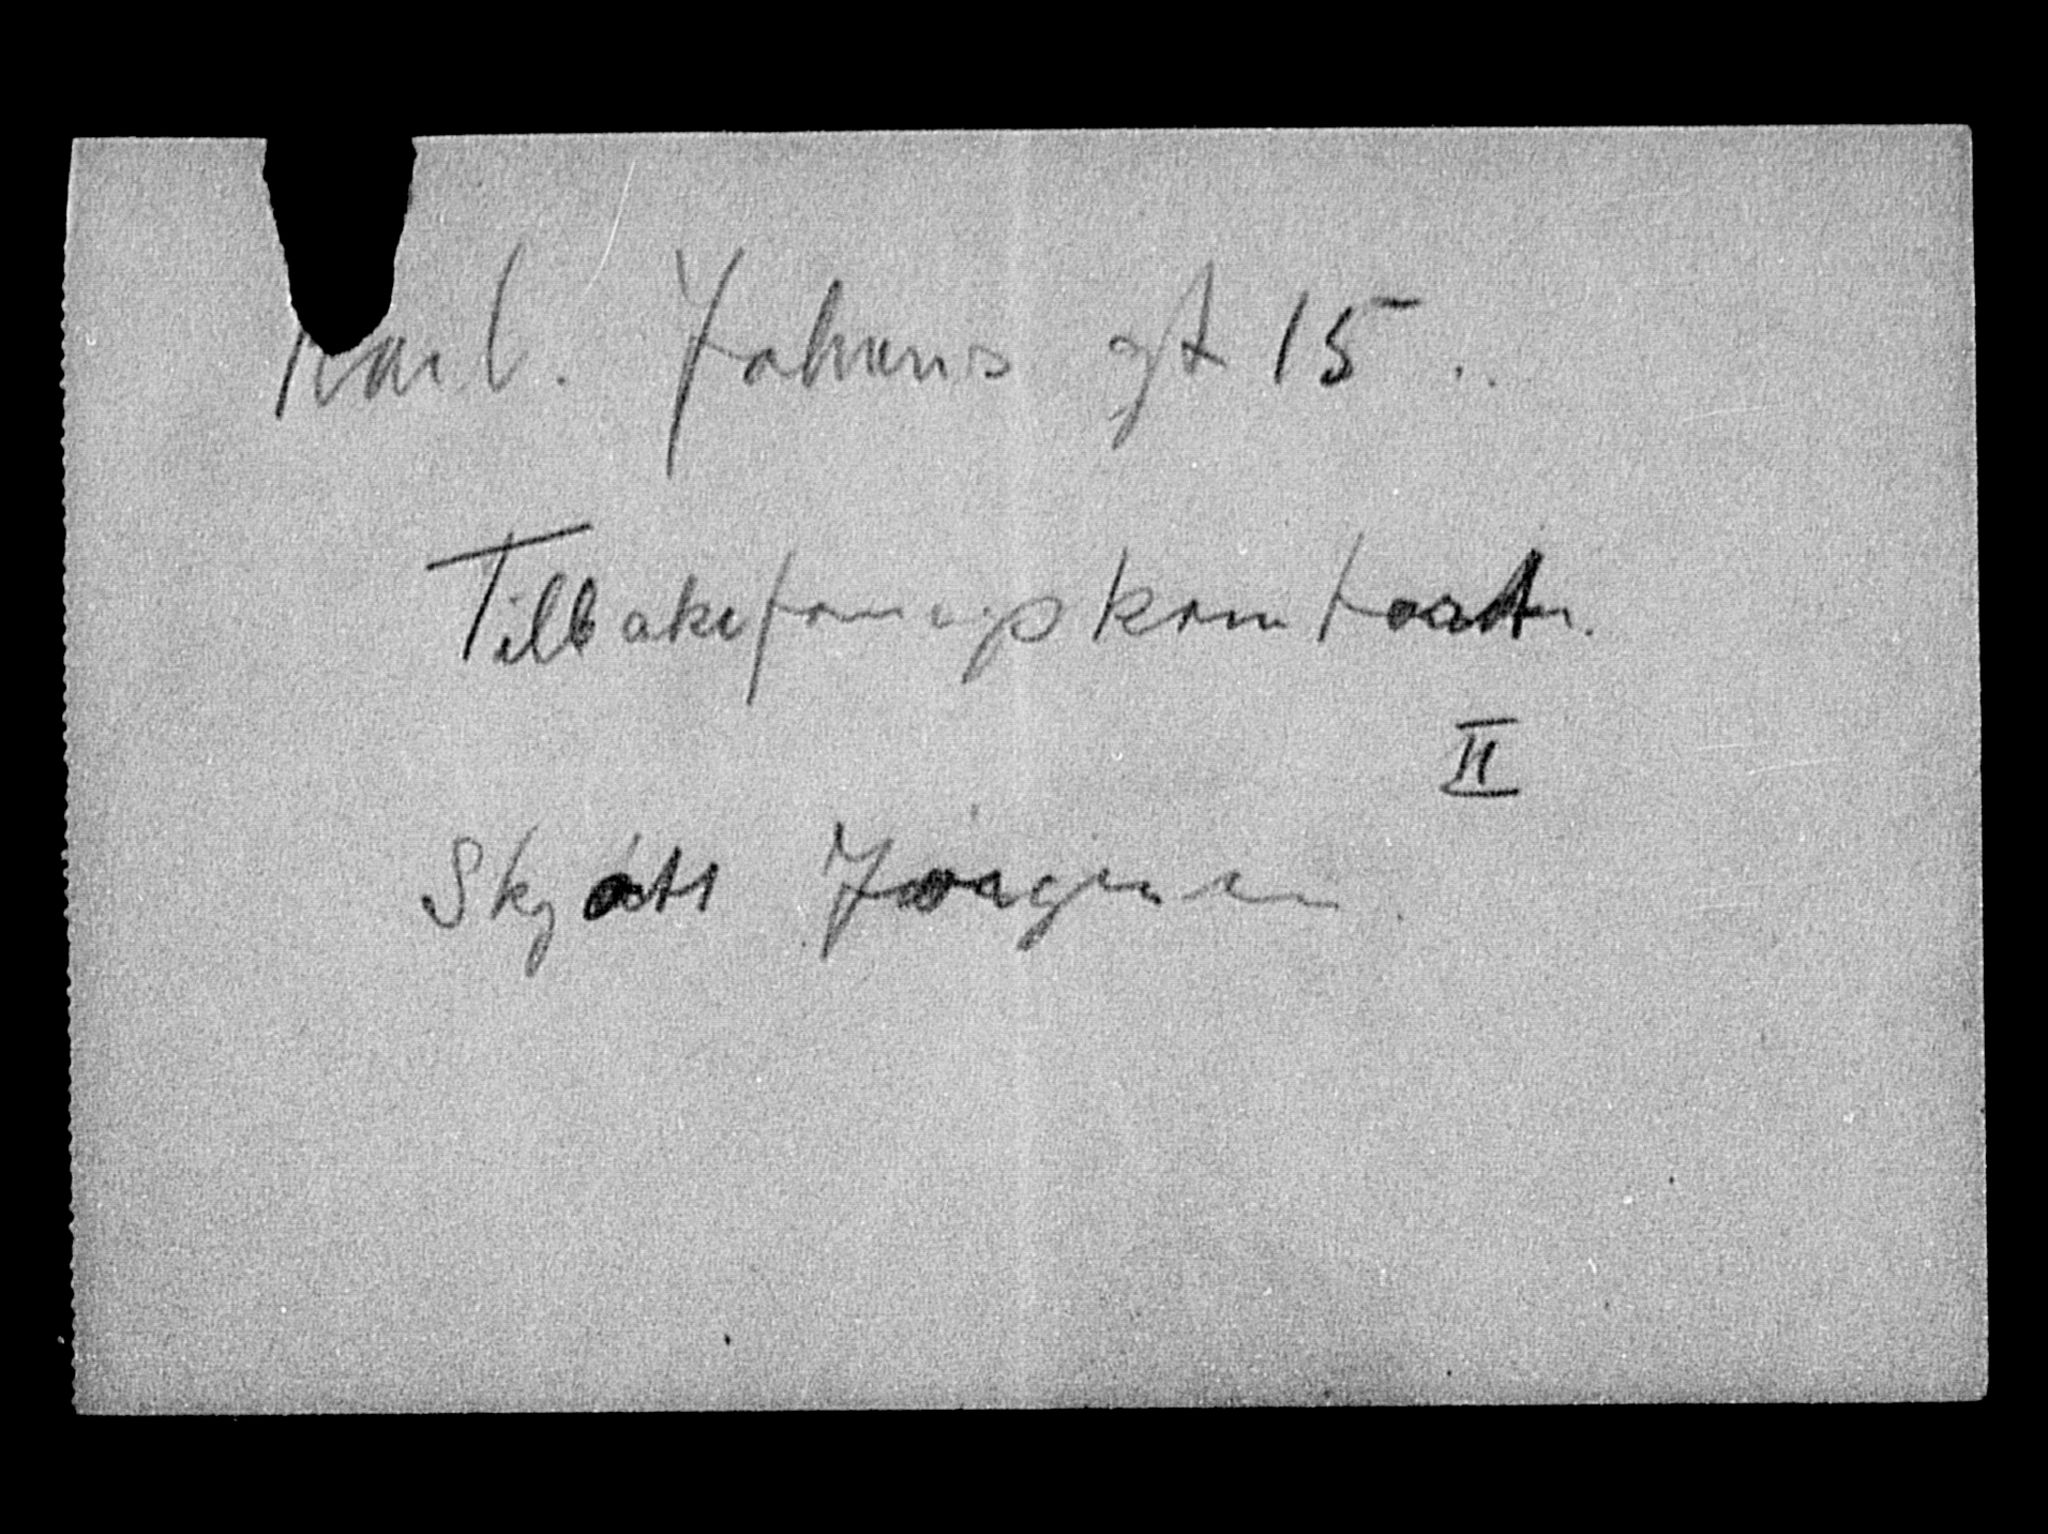 Karl. Johans gt 15..
Tilbakeføringskontort.
II
Skjøtt Jørgensen.